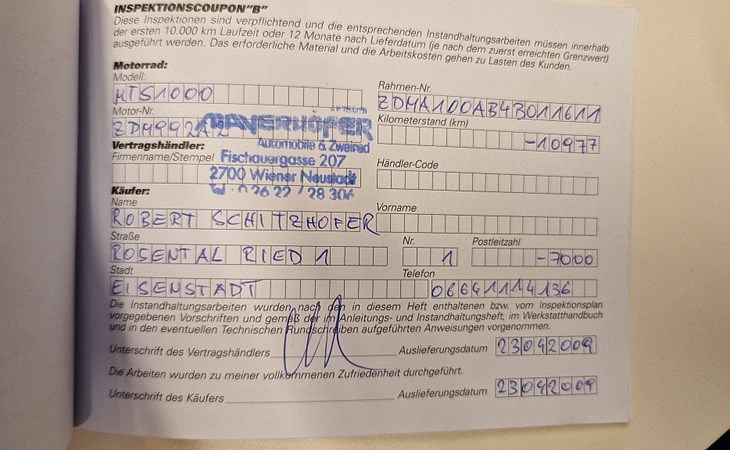 INSPEKTIONSCOUPON"B"
Diese Inspektionen sind verpflichtend und die entsprechenden Instandhaltungsarbeiten müssen innerhalb
der ersten 10.000 km Laufzeit oder 12 Monate nach Lieferdatum (je nach dem zuerst erreichten Grenzwert)
ausgeführt werden. Das erforderliche Material und die Arbeitskosten gehen zu Lasten des Kunden.
Motorrad:
Modell:
MTS1000
Rahmen-Nr.
ZDMA100AB4B011611
Motor-Nr.
ZDM992A2
MAYERHOFER
Automobile & Zweirad
Fischauergasse 207
2700 Wiener Neustadt
Tel. 0 26 22 / 28 306
Kilometerstand (km)
-10977
Vertragshändler:
Firmenname/Stempel
Händler-Code
Käufer:
Name
Vorname
ROBERT SCHITZHOFER
Straße
Nr.
Postleitzahl
ROSENTAL RIED 1
1
-7000
Stadt
Telefon
EISENSTADT
06641114136
Die Instandhaltungsarbeiten wurden nach den in diesem Heft enthaltenen bzw. vom Inspektionsplan
vorgegebenen Vorschriften und gemäß der im Anleitungs- und Instandhaltungsheft, im Werkstatthandbuch
und in den eventuellen Technischen Rundschreiben aufgeführten Anweisungen vorgenommen.
Unterschrift des Vertragshändlers
Auslieferungsdatum
23042009
Die Arbeiten wurden zu meiner vollkommenen Zufriedenheit durchgeführt.
Unterschrift des Käufers
Auslieferungsdatum
23042009